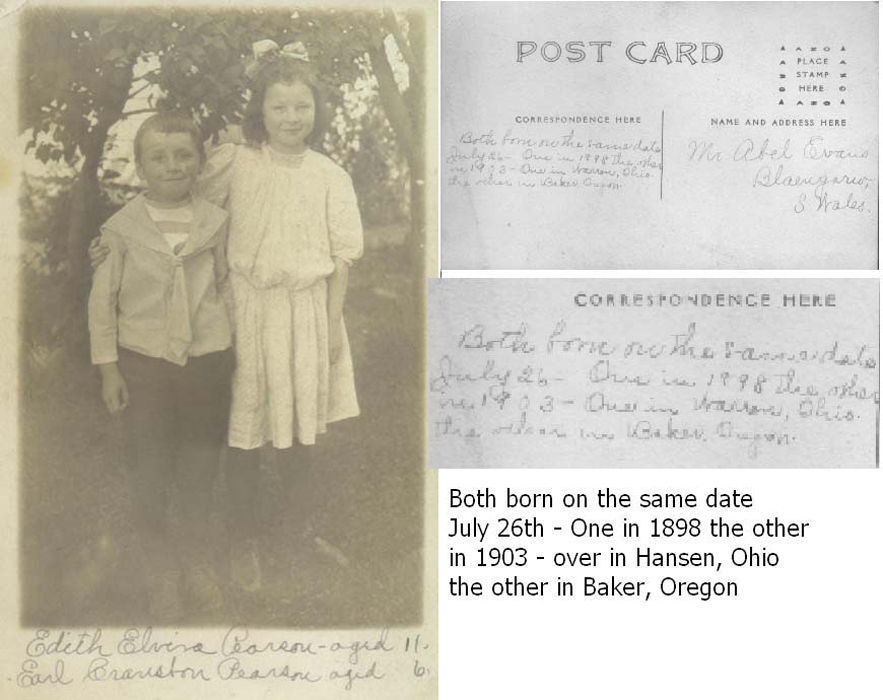 Edith Elvira Pearson - aged 11.
Earl Cranston Pearson aged 6.
POST CARD
AZO
PLACE
STAMP
HERE
AZO
CORRESPONDENCE HERE
NAME AND ADDRESS HERE
Both born on the same date
July 26 - One in 1898 the other
in 1903 - One in Warren, Ohio.
the other in Baker, Oregon.
Mr Abel Evans
Blaengarw,
S Wales.
CORRESPONDENCE HERE
Both born on the same date
July 26 - One in 1898 the other
in 1903 - One in Warren, Ohio.
the other in Baker, Oregon.
Both born on the same date
July 26th - One in 1898 the other
in 1903 - over in Hansen, Ohio
the other in Baker, Oregon